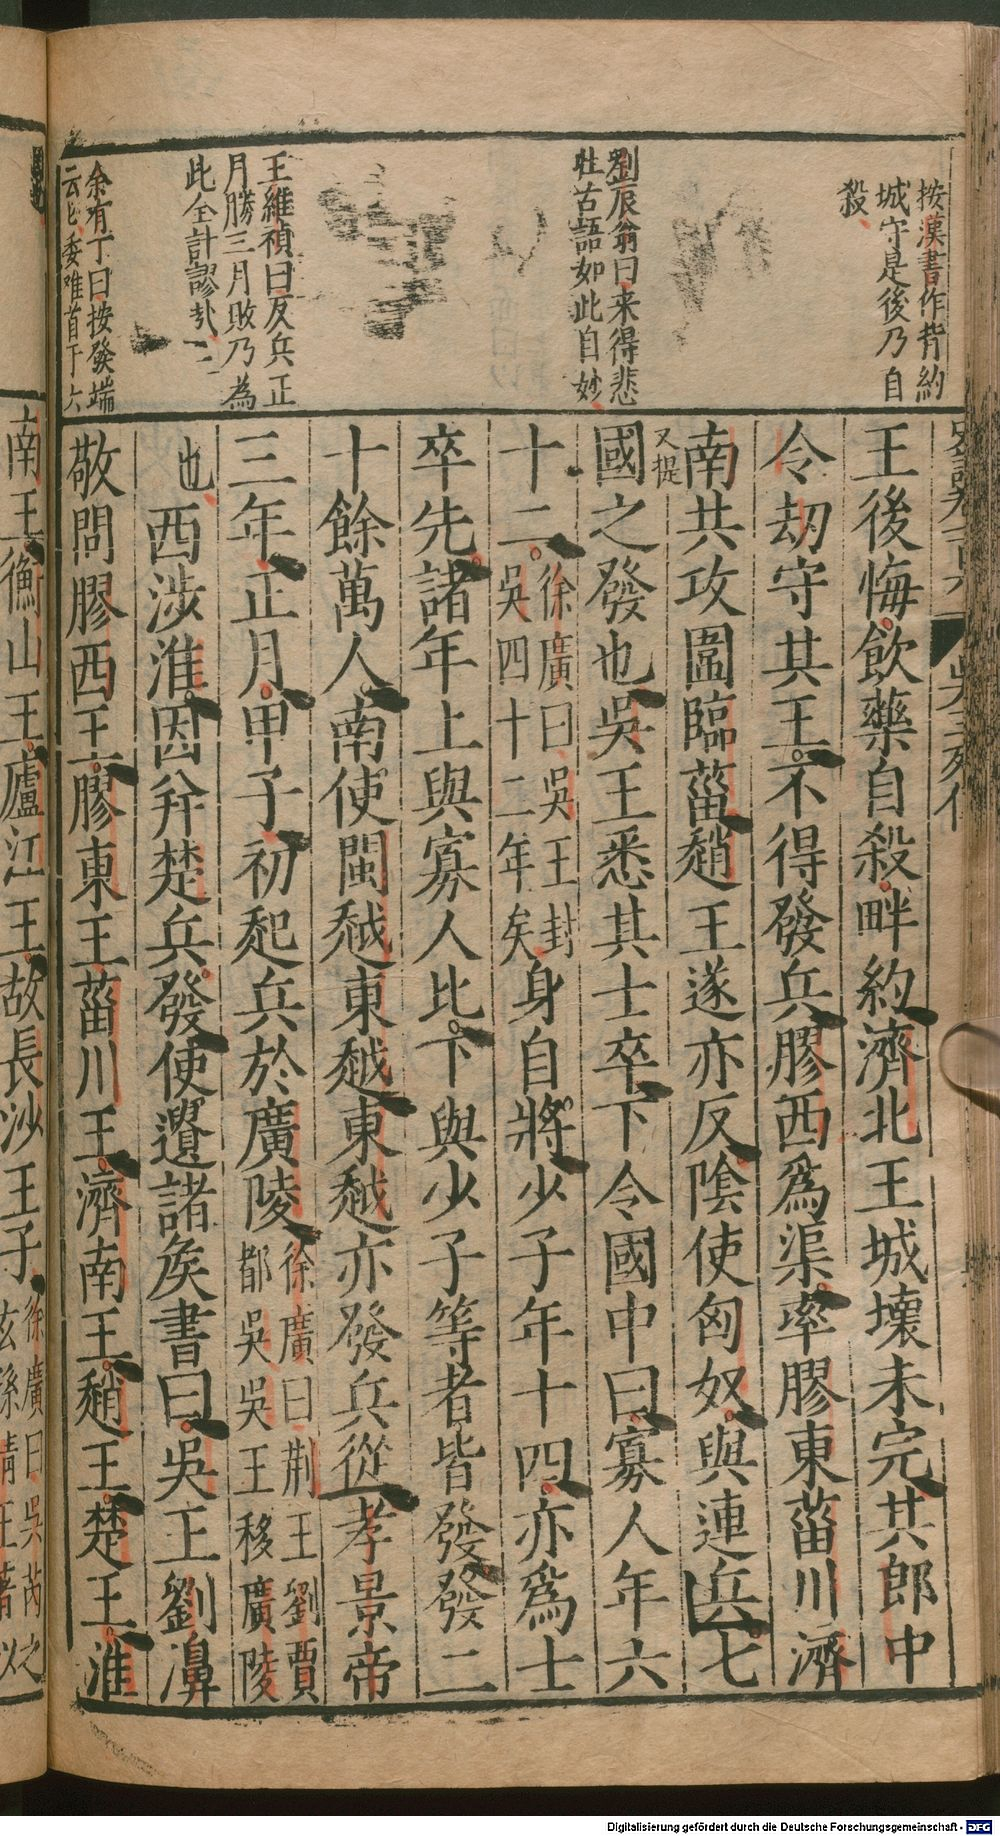 按漢書作背約
城守是後乃自
殺
劉辰翁曰来得悲
壯古語如此自妙
王維禎曰反兵正
月勝三月敗乃為
此全計謬哉
余有丁曰按發端
云
史記卷一百六
吳王列傳
王後悔飲藥自殺畔約濟北王城壞未完其郎中
令劫守其王不得發兵膠西爲渠率膠東菑川濟
南共攻圍臨菑趙王遂亦反陰使匈奴與連兵七
又提
國之發也吳王悉其士卒下令國中曰寡人年六
十二徐廣曰吳王封
吳四十二年矣身自將少子年十四亦爲士
卒先諸年上與寡人比下與少子等者皆發發二
十餘萬人南使閩越東越東越亦發兵從孝景帝
三年正月甲子初起兵於廣陵徐廣曰荆王劉賈
都吳吳王移廣陵
也西涉淮因幷楚兵發使遺諸矦書曰吳王劉濞
敬問膠西王膠東王菑川王濟南王趙王楚王淮
南王衡山王廬江王故長沙王子徐廣曰吳芮之
玄孫靖王著以
Digitalisierung gefördert durch die Deutsche Forschungsgemeinschaft - DFG